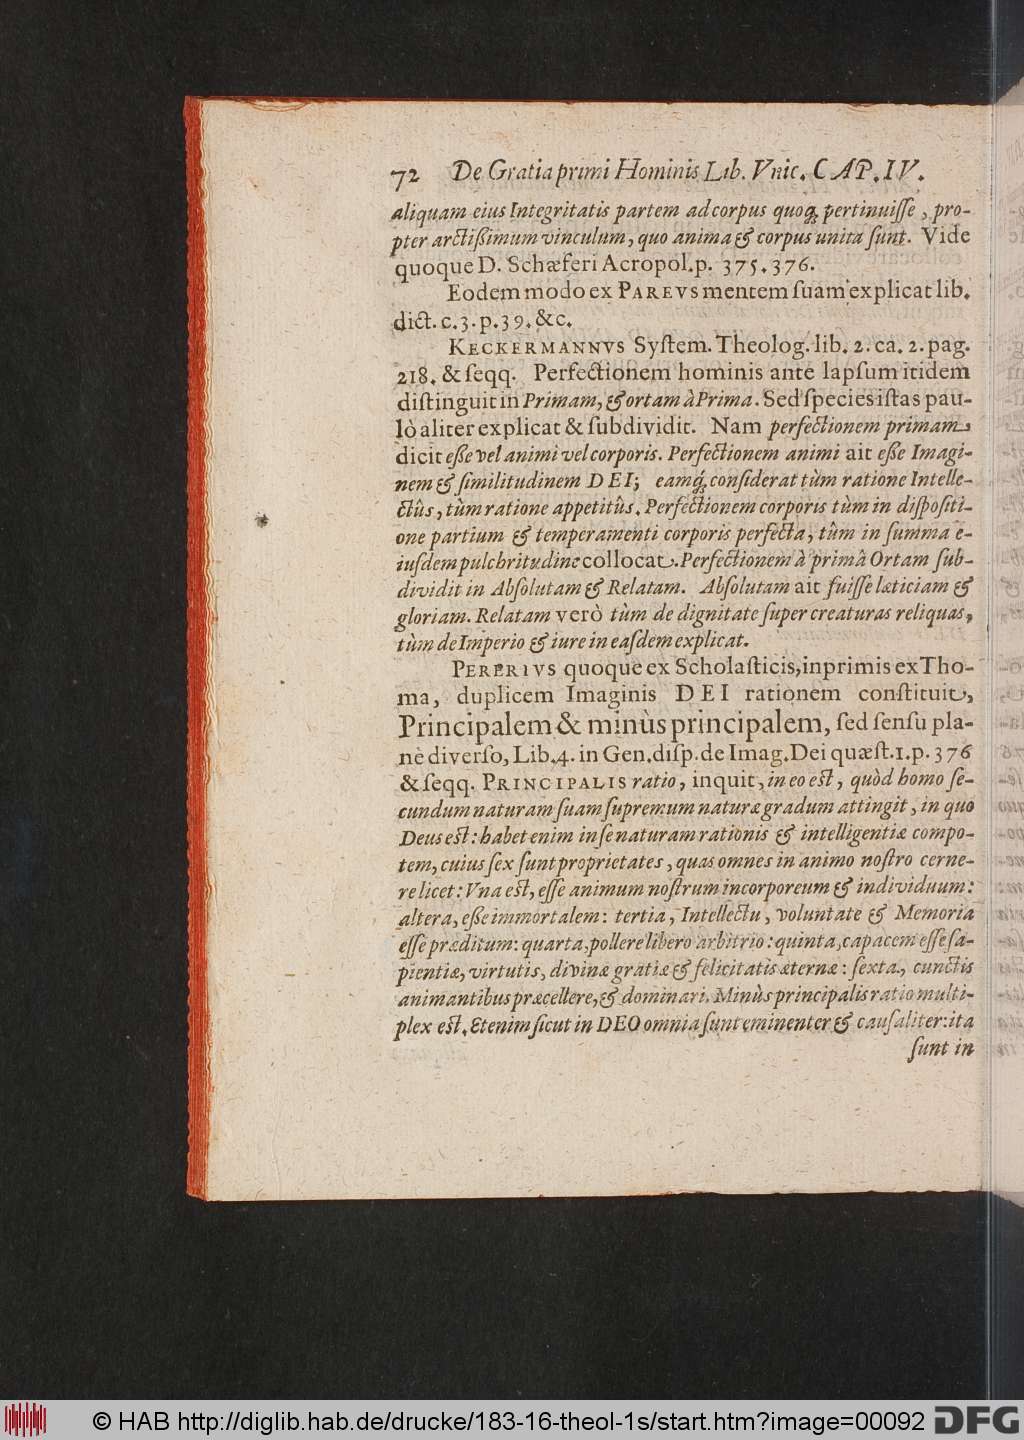 72 De Gratia primi Hominis Lib. Vnic. CAP. IV.
aliquam eius Integritatis partem ad corpus quoq; pertinuiſſe, pro-
pter arctißimum vinculum, quo anima & corpus unita ſunt. Vide
quoque D. Schæferi Acropol. p. 375. 376.
Eodem modo ex PAREVS mentem ſuam explicat lib.
dict. c. 3. p. 39. &c.
KECKERMANNVS Syſtem. Theolog. lib. 2. ca. 2. pag.
218. & ſeqq. Perfectionem hominis ante lapſum itidem
diſtinguit in Primam, & ortam à Prima. Sed ſpecies iſtas pau-
lò aliter explicat & ſubdividit. Nam perfectionem primam
dicit eße vel animi vel corporis. Perfectionem animi ait eße Imagi-
nem & ſimilitudinem DEI; eamq́; conſiderat tùm ratione Intelle-
ctûs, tùm ratione appetitûs. Perfectionem corporis tùm in diſpoſiti-
one partium & temperamenti corporis perfecta, tûm in ſumma e-
iuſdem pulchritudine collocat. Perfectionem à primâ Ortam ſub-
dividit in Abſolutam & Relatam. Abſolutam ait fuiſſe læticiam &
gloriam. Relatam verò tùm de dignitate ſuper creaturas reliquas,
tùm de Imperio & iure in eaſdem explicat.
PERERIVS quoque ex Scholaſticis, inprimis ex Tho-
ma, duplicem Imaginis DEI rationem conſtituit,
Principalem & minùs principalem, ſed ſenſu pla-
nè diverſo, Lib. 4. in Gen. diſp. de Imag. Dei quæſt. 1. p. 376
& ſeqq. PRINCIPALIS ratio, inquit, in eo eſt, quòd homo ſe-
cundum naturam ſuam ſupremum naturæ gradum attingit, in quo
Deus eſt: habet enim in ſe naturam rationis & intelligentiæ compo-
tem, cuius ſex ſunt proprietates, quas omnes in animo noſtro cerne-
re licet: Vna eſt, eſſe animum noſtrum incorporeum & individuum:
altera, eße immortalem: tertia, Intellectu, voluntate & Memoria
eſſe præditum: quarta, pollere libero arbitrio: quinta, capacem eſſe ſa-
pientiæ, virtutis, divinæ gratiæ & felicitatis æternæ: ſexta, cunctis
animantibus præcellere, & dominari. Minùs principalis ratio multi-
plex eſt. Etenim ſicut in DEO omnia ſunt eminenter & cauſaliter: ita
ſunt in
© HAB http://diglib.hab.de/drucke/183-16-theol-1s/start.htm?image=00092 DFG